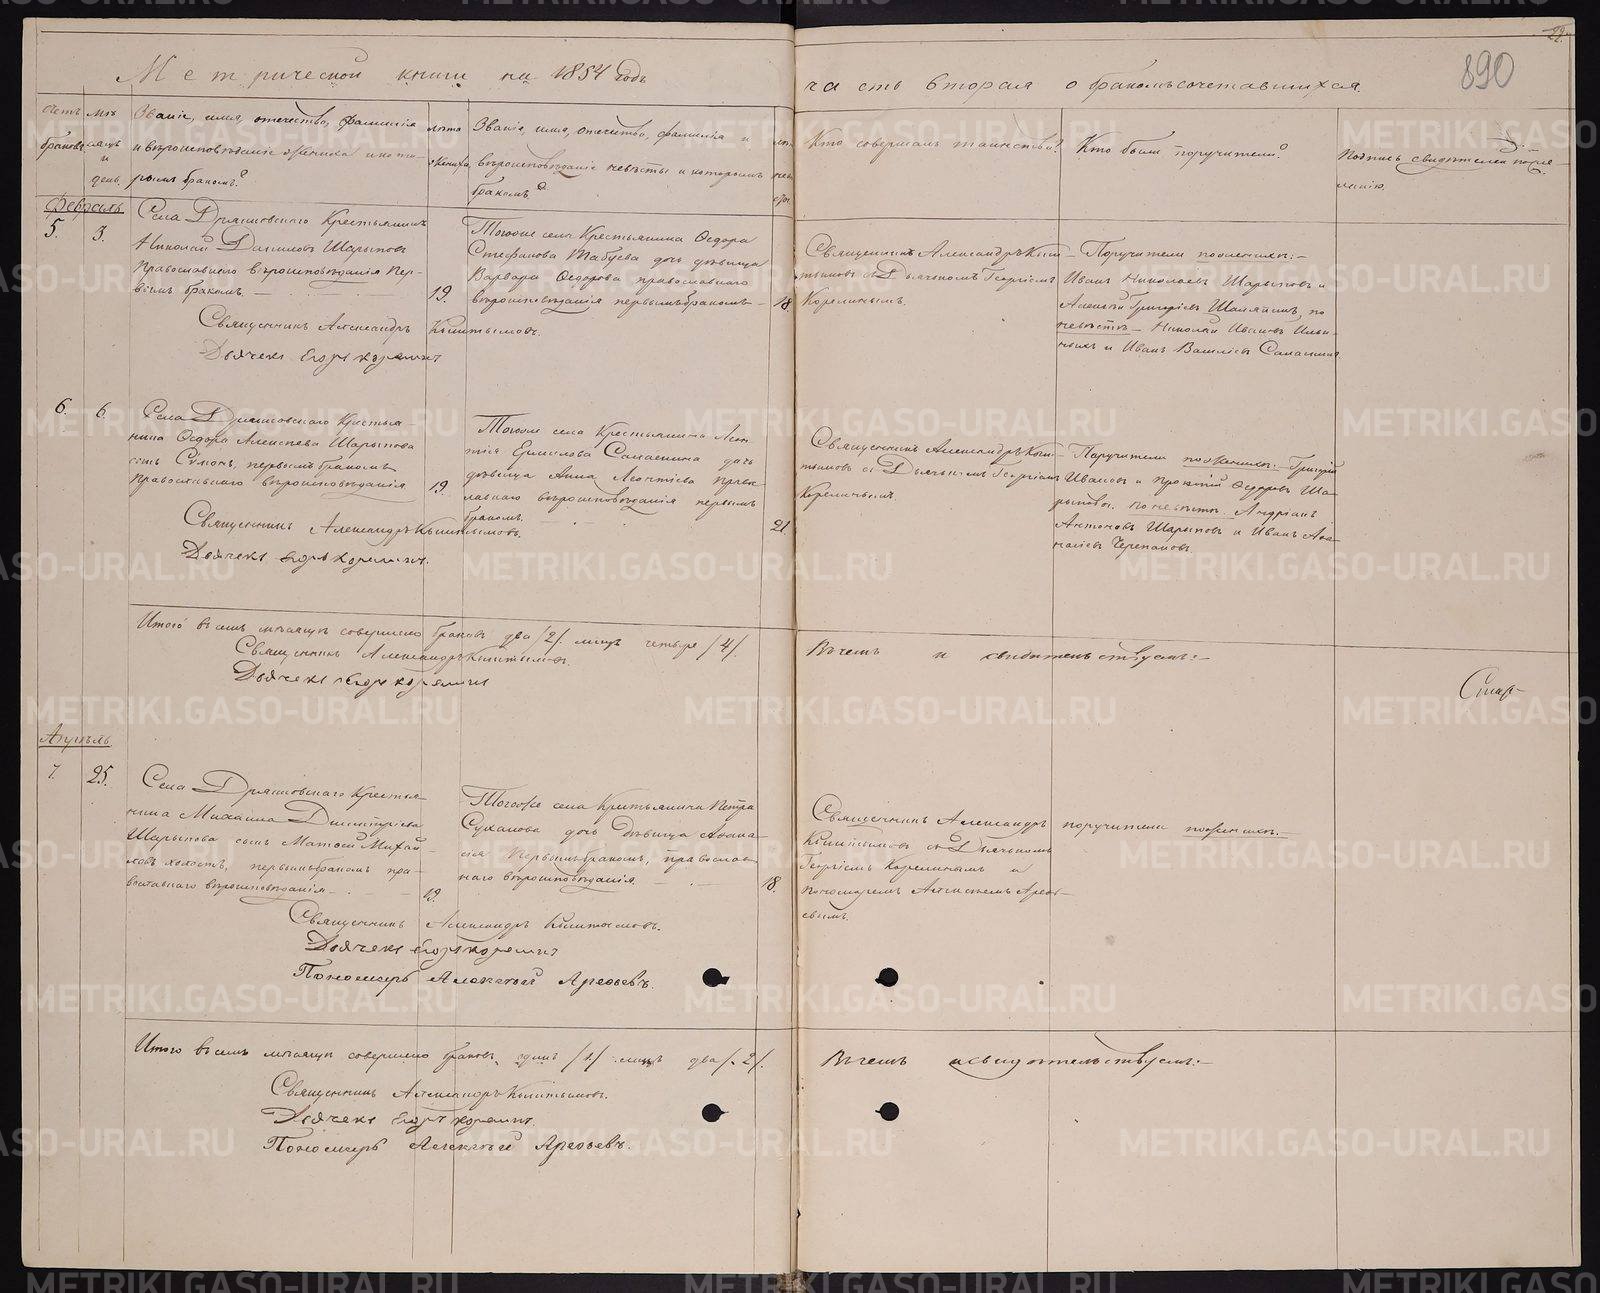 Метрической книги на 1854 годъ
часть вторая о бракомъсочетавшихся.
22.
890
Счетъ браковъ
Мѣсяцъ и день.
Званіе, имя, отечество, фамилія
и вѣроисповѣданіе жениха и кото-
рымъ бракомъ?
лѣта
жениха
Званіе, имя, отечество, фамилія и
вѣроисповѣданіе невѣсты и которымъ
бракомъ?
Кто совершалъ таинство?
Кто были поручители?
Подпись свидѣтелей по же-
ланію.
Февраль
5.
3.
Крестьянинъ
Николай Даниловъ Шарыповъ
Православнаго вѣроисповѣданія пер-
вымъ бракомъ.
19.
Тогоже села Крестьянина Ѳедора
Стефанова дочь дѣвица
Варвара Ѳедорова православнаго
вѣроисповѣданія первымъ бракомъ
18.
Священникъ Александръ
съ Дьячкомъ Георгіемъ
Корелинымъ.
Поручители по женихѣ:
Иванъ Николаевъ Шарыповъ и
Алексѣй Григорьевъ по
невѣстѣ Николай Ивановъ
и Иванъ Васильевъ
Священникъ Александръ
Дьячекъ Егоръ Корелинъ
6.
6.
Крестья-
нина Ѳедора Алексѣева Шарыпова
сынъ Симонъ, первымъ бракомъ
православнаго вѣроисповѣданія
19.
Тогоже села Крестьянина Леон-
тія Ермилова дочь
дѣвица Анна Леонтіева право-
славнаго вѣроисповѣданія первымъ
бракомъ.
21.
Священникъ Александръ
съ Дьячкомъ Георгіемъ
Корелинымъ
Поручители по женихѣ: Григорій
Ивановъ и Прокопій Ѳедоровъ Ша-
рыповы. по невѣстѣ Андріанъ
Антоновъ Шарыповъ и Иванъ
Черепановъ.
Священникъ Александръ
Дьячекъ Егоръ Корелинъ.
Итого въ семъ мѣсяцѣ совершено браковъ два /2/. лицъ четыре /4/.
Священникъ Александръ
Дьячекъ Егоръ Корелинъ
Въ чемъ и свидѣтельствуемъ:
Апрѣль
7.
25.
Крестья-
нина Михаила Димитріева
Шарыпова сынъ Матѳей Михай-
ловъ холостъ, первымъ бракомъ пра-
вославнаго вѣроисповѣданія
19.
Тогоже села Крестьянина Петра
Суханова дочь Дѣвица Анана-
сія первымъ бракомъ, православ-
наго вѣроисповѣданія.
18.
Священникъ Александръ
съ Дьячкомъ
Георгіемъ Корелинымъ и
пономаремъ Алексѣемъ Арефь-
евымъ.
поручители по женихѣ:
Священникъ Александръ
Дьячекъ Егоръ Корелинъ
Пономарь Алексѣй Арефьевъ.
Итого въ семъ мѣсяцѣ совершено браковъ одинъ /1/ лицъ два /2/.
Священникъ Александръ
Дьячекъ Егоръ Корелинъ.
Пономарь Алексѣй Арефьевъ.
Въ чемъ и свидѣтельствуемъ:
METRIKI.GASO-URAL.RU